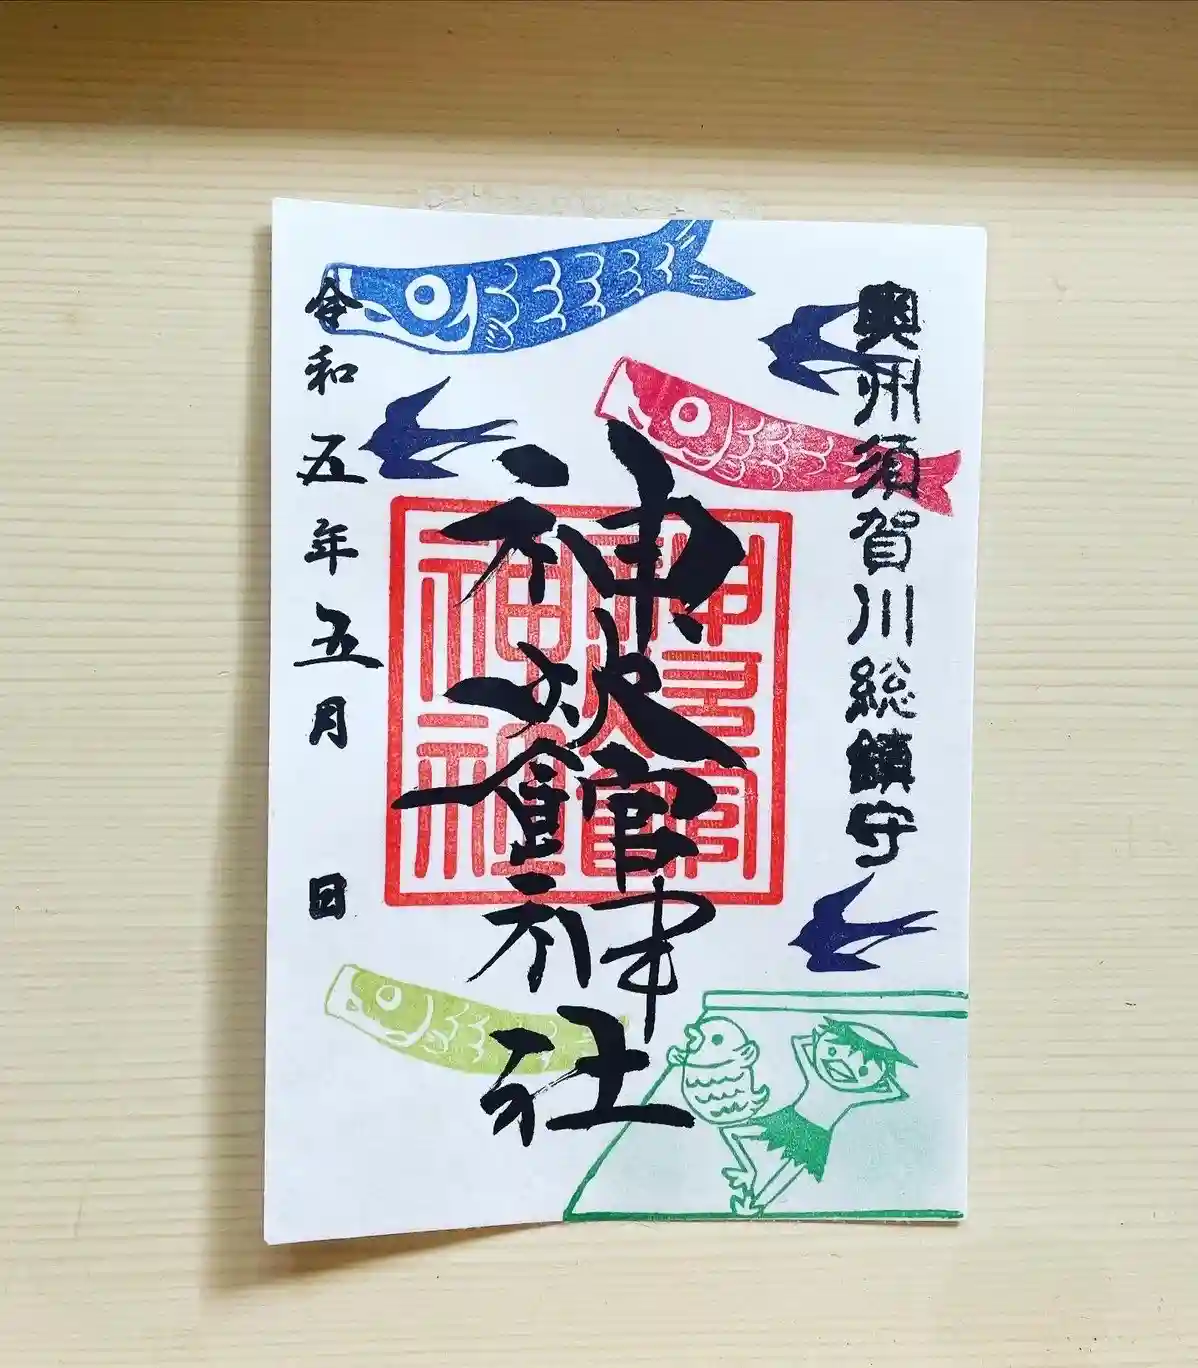 奥州須賀川総鎮守
神炊館神社
令和五年五月　日